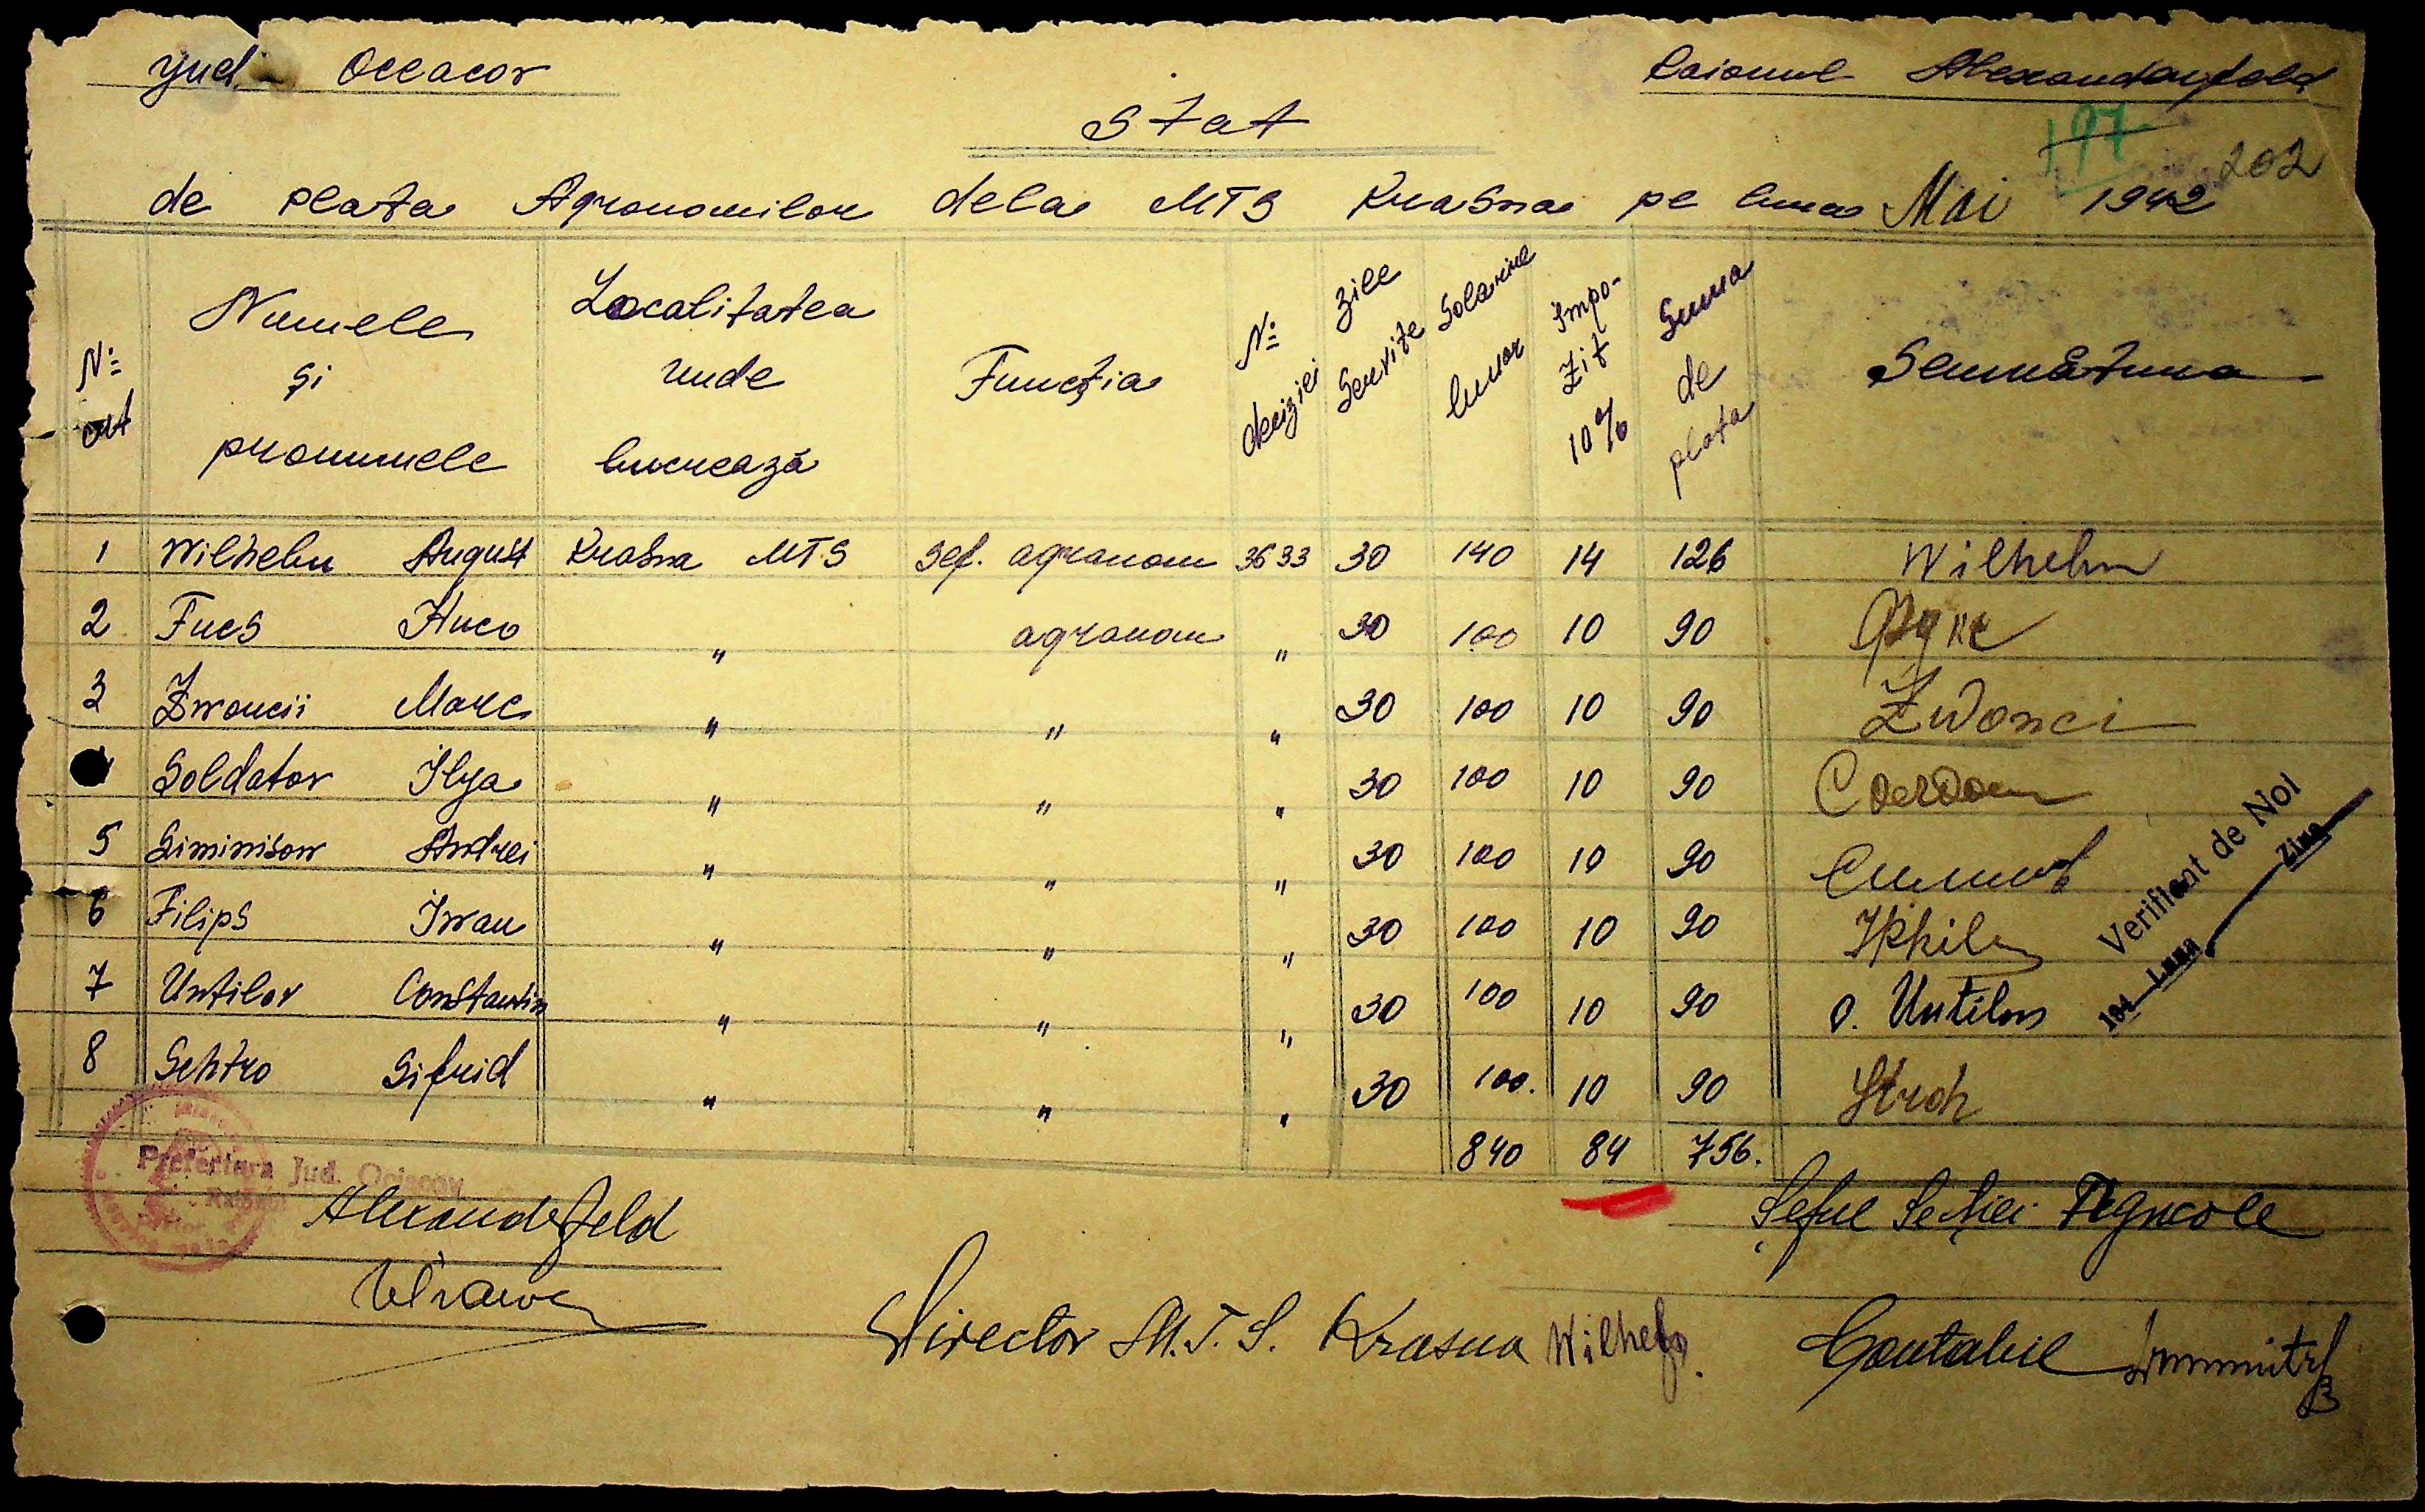 Jud. Oceacov Raionul Alexandarfeld
Stat
197 202
de plata Agronomilor dela MTS Krasna pe luna Mai 1942
№ crt Numele și pronumele Localitatea unde lucrează Funcția № deciziei Zile Servite Solariul lunar Impozit 10% Suma de plata Semnătura
1 Wilhelm August Krasna MTS Șef. agranom 3633 30 140 14 126 Wilhelm
2 Fucs Huco " agranom " 30 100 10 90
3 Zwoncii Marc " " " 30 100 10 90 Zwonci
Soldatov Ilya " " " 30 100 10 90
5 Siminisow Andrei " " " 30 100 10 90
6 Filips Iwan " " " 30 100 10 90
7 Untilov Constantin " " " 30 100 10 90 Untilov
8 Sehtro Sifrid " " " 30 100. 10 90 Stroh
840 84 756.
Verificat de Noi
194 Luna Ziua
Prefectura Jud. Oceacov
Alexanderfeld
Șeful Secției Agricole
Director M.T.S. Krasna Wilhelm
Contabil